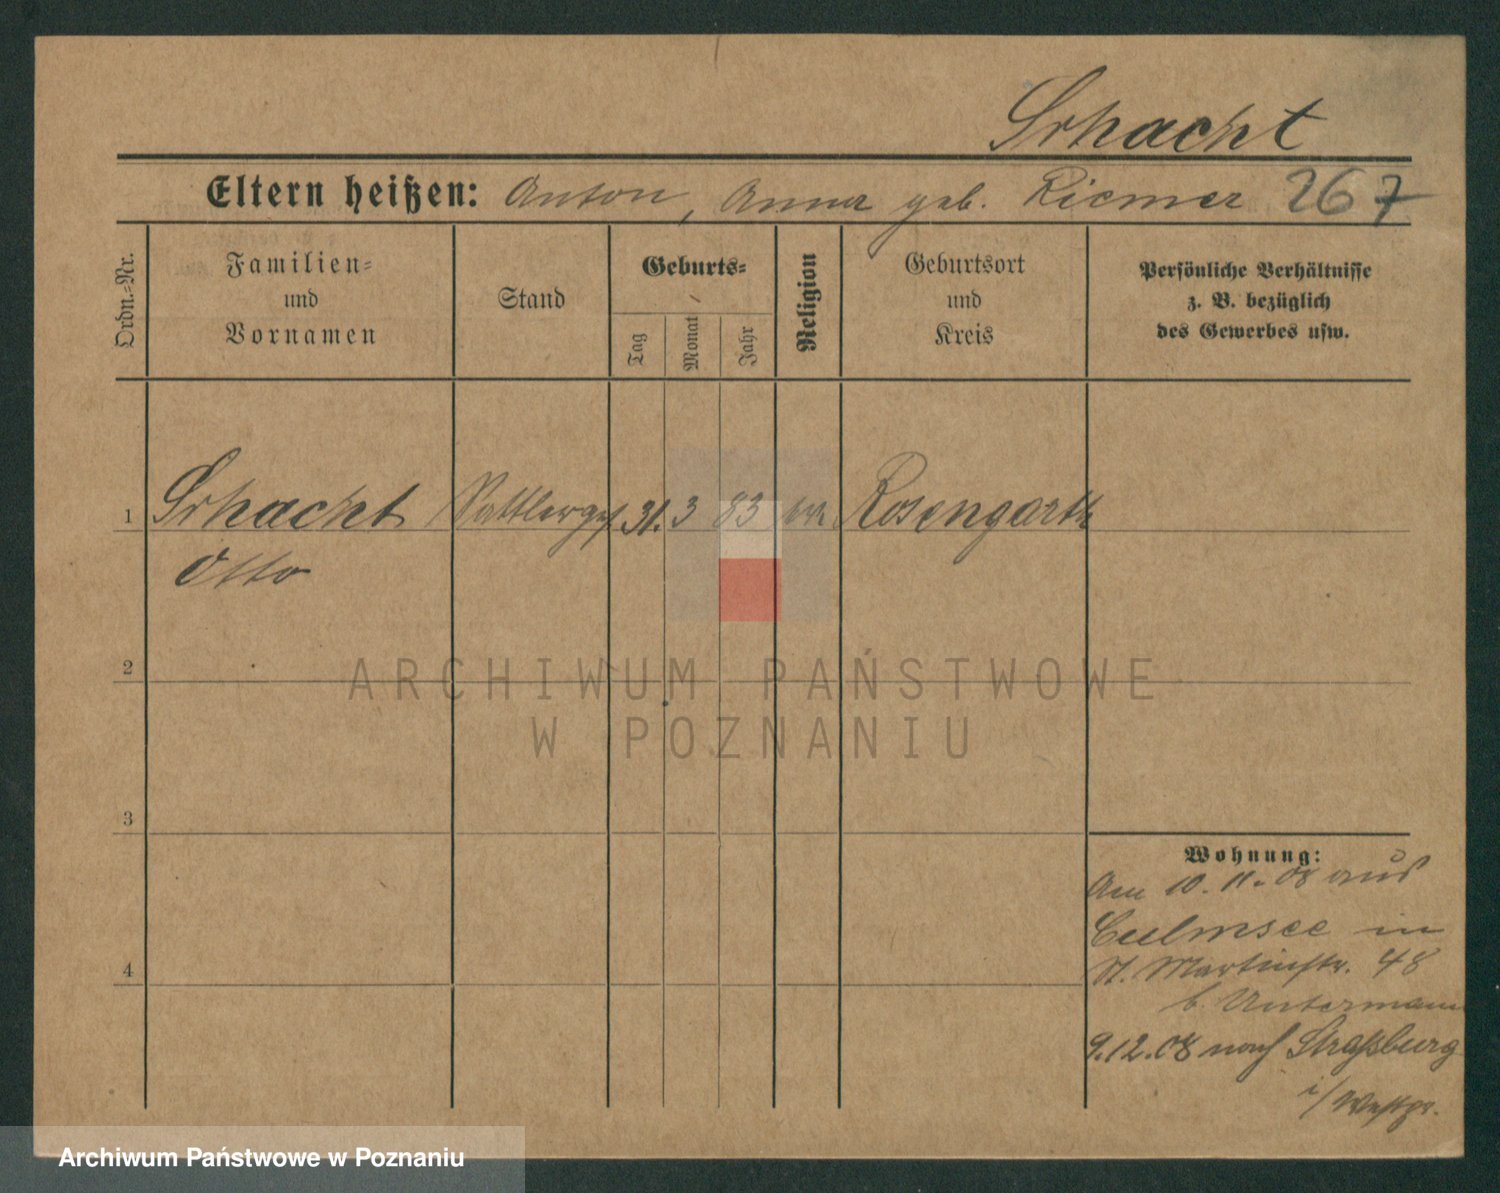 Schacht
Eltern heißen: Anton, Anna geb. Riemer 267
Ordn.-Nr.
Familien-
und
Vornamen
Stand
Geburts-
Tag
Monat
Jahr
Religion
Geburtsort
und
Kreis
Persönliche Verhältnisse
z. B. bezüglich
des Gewerbes usw.
1 Schacht Sattlerges. 31. 3 83 Rosengarth
Otto
2
ARCHIWUM PAŃSTWOWE
W POZNANIU
3
Wohnung:
Am 10. 11. 08 aus
Culmsee in
St. Martinstr. 48
b. Untermann
9.12.08 nach Straßburg
i/ Westpr.
4
Archiwum Państwowe w Poznaniu